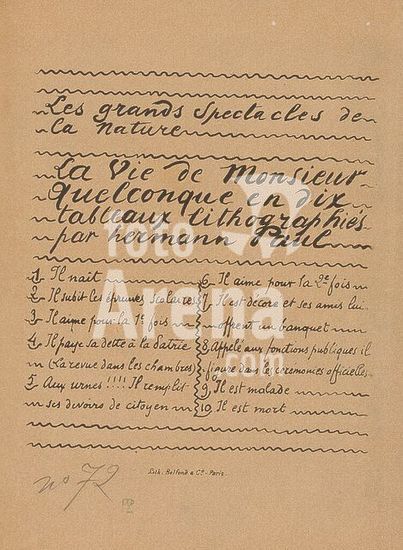 Les grands Spectacles de
la nature
La Vie de Monsieur
Quelconque en dix
tableaux lithographiés
par hermann Paul
1 Il nait
2 Il subit les épreuves scolaires
3 Il aime pour la 1e fois
4 Il paye sa dette à la Patrie
(La revue dans les chambres)
5 Aux urnes !!!! Il remplit
ses devoirs de citoyen
6 Il aime pour la 2e fois
7 Il est décoré et ses amis lui
offrent un banquet
8 Appelé aux fonctions publiques il
figure dans les cérémonies officielles
9 Il est malade
10 Il est mort
Lith. Belfond & Cie. Paris.
no 72
foto
Arena
.com